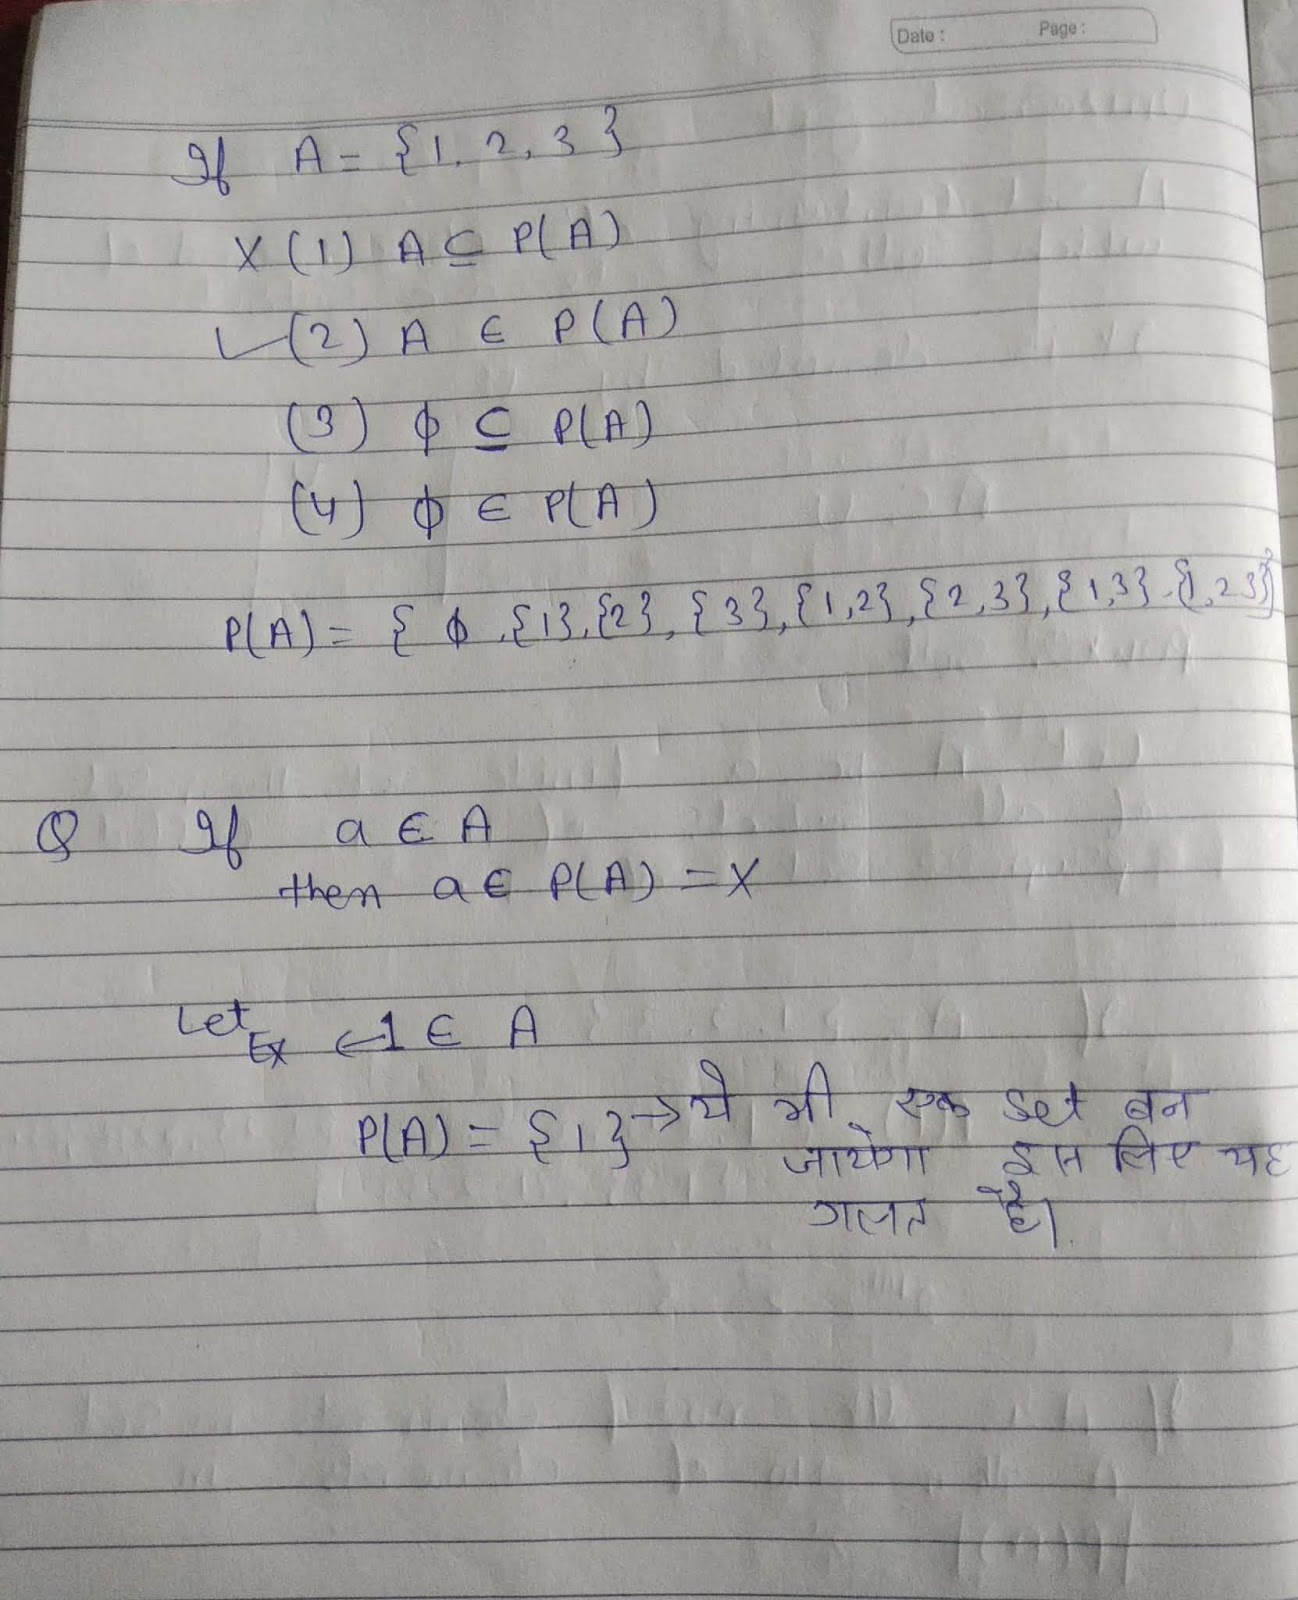 Date : Page :
If A = {1, 2, 3}
X (1) A ⊆ P(A)
✓ (2) A ∈ P(A)
(3) ϕ ⊆ P(A)
(4) ϕ ∈ P(A)
P(A) = { ϕ, {1}, {2}, {3}, {1,2}, {2,3}, {1,3}, {1,2 3}}
Q If a ∈ A
then a ∈ P(A) = X
Let Ex ← 1 ∈ A
P(A) = {1} → ये भी एक set बन
जायेगा इस लिए यह
गलत है।